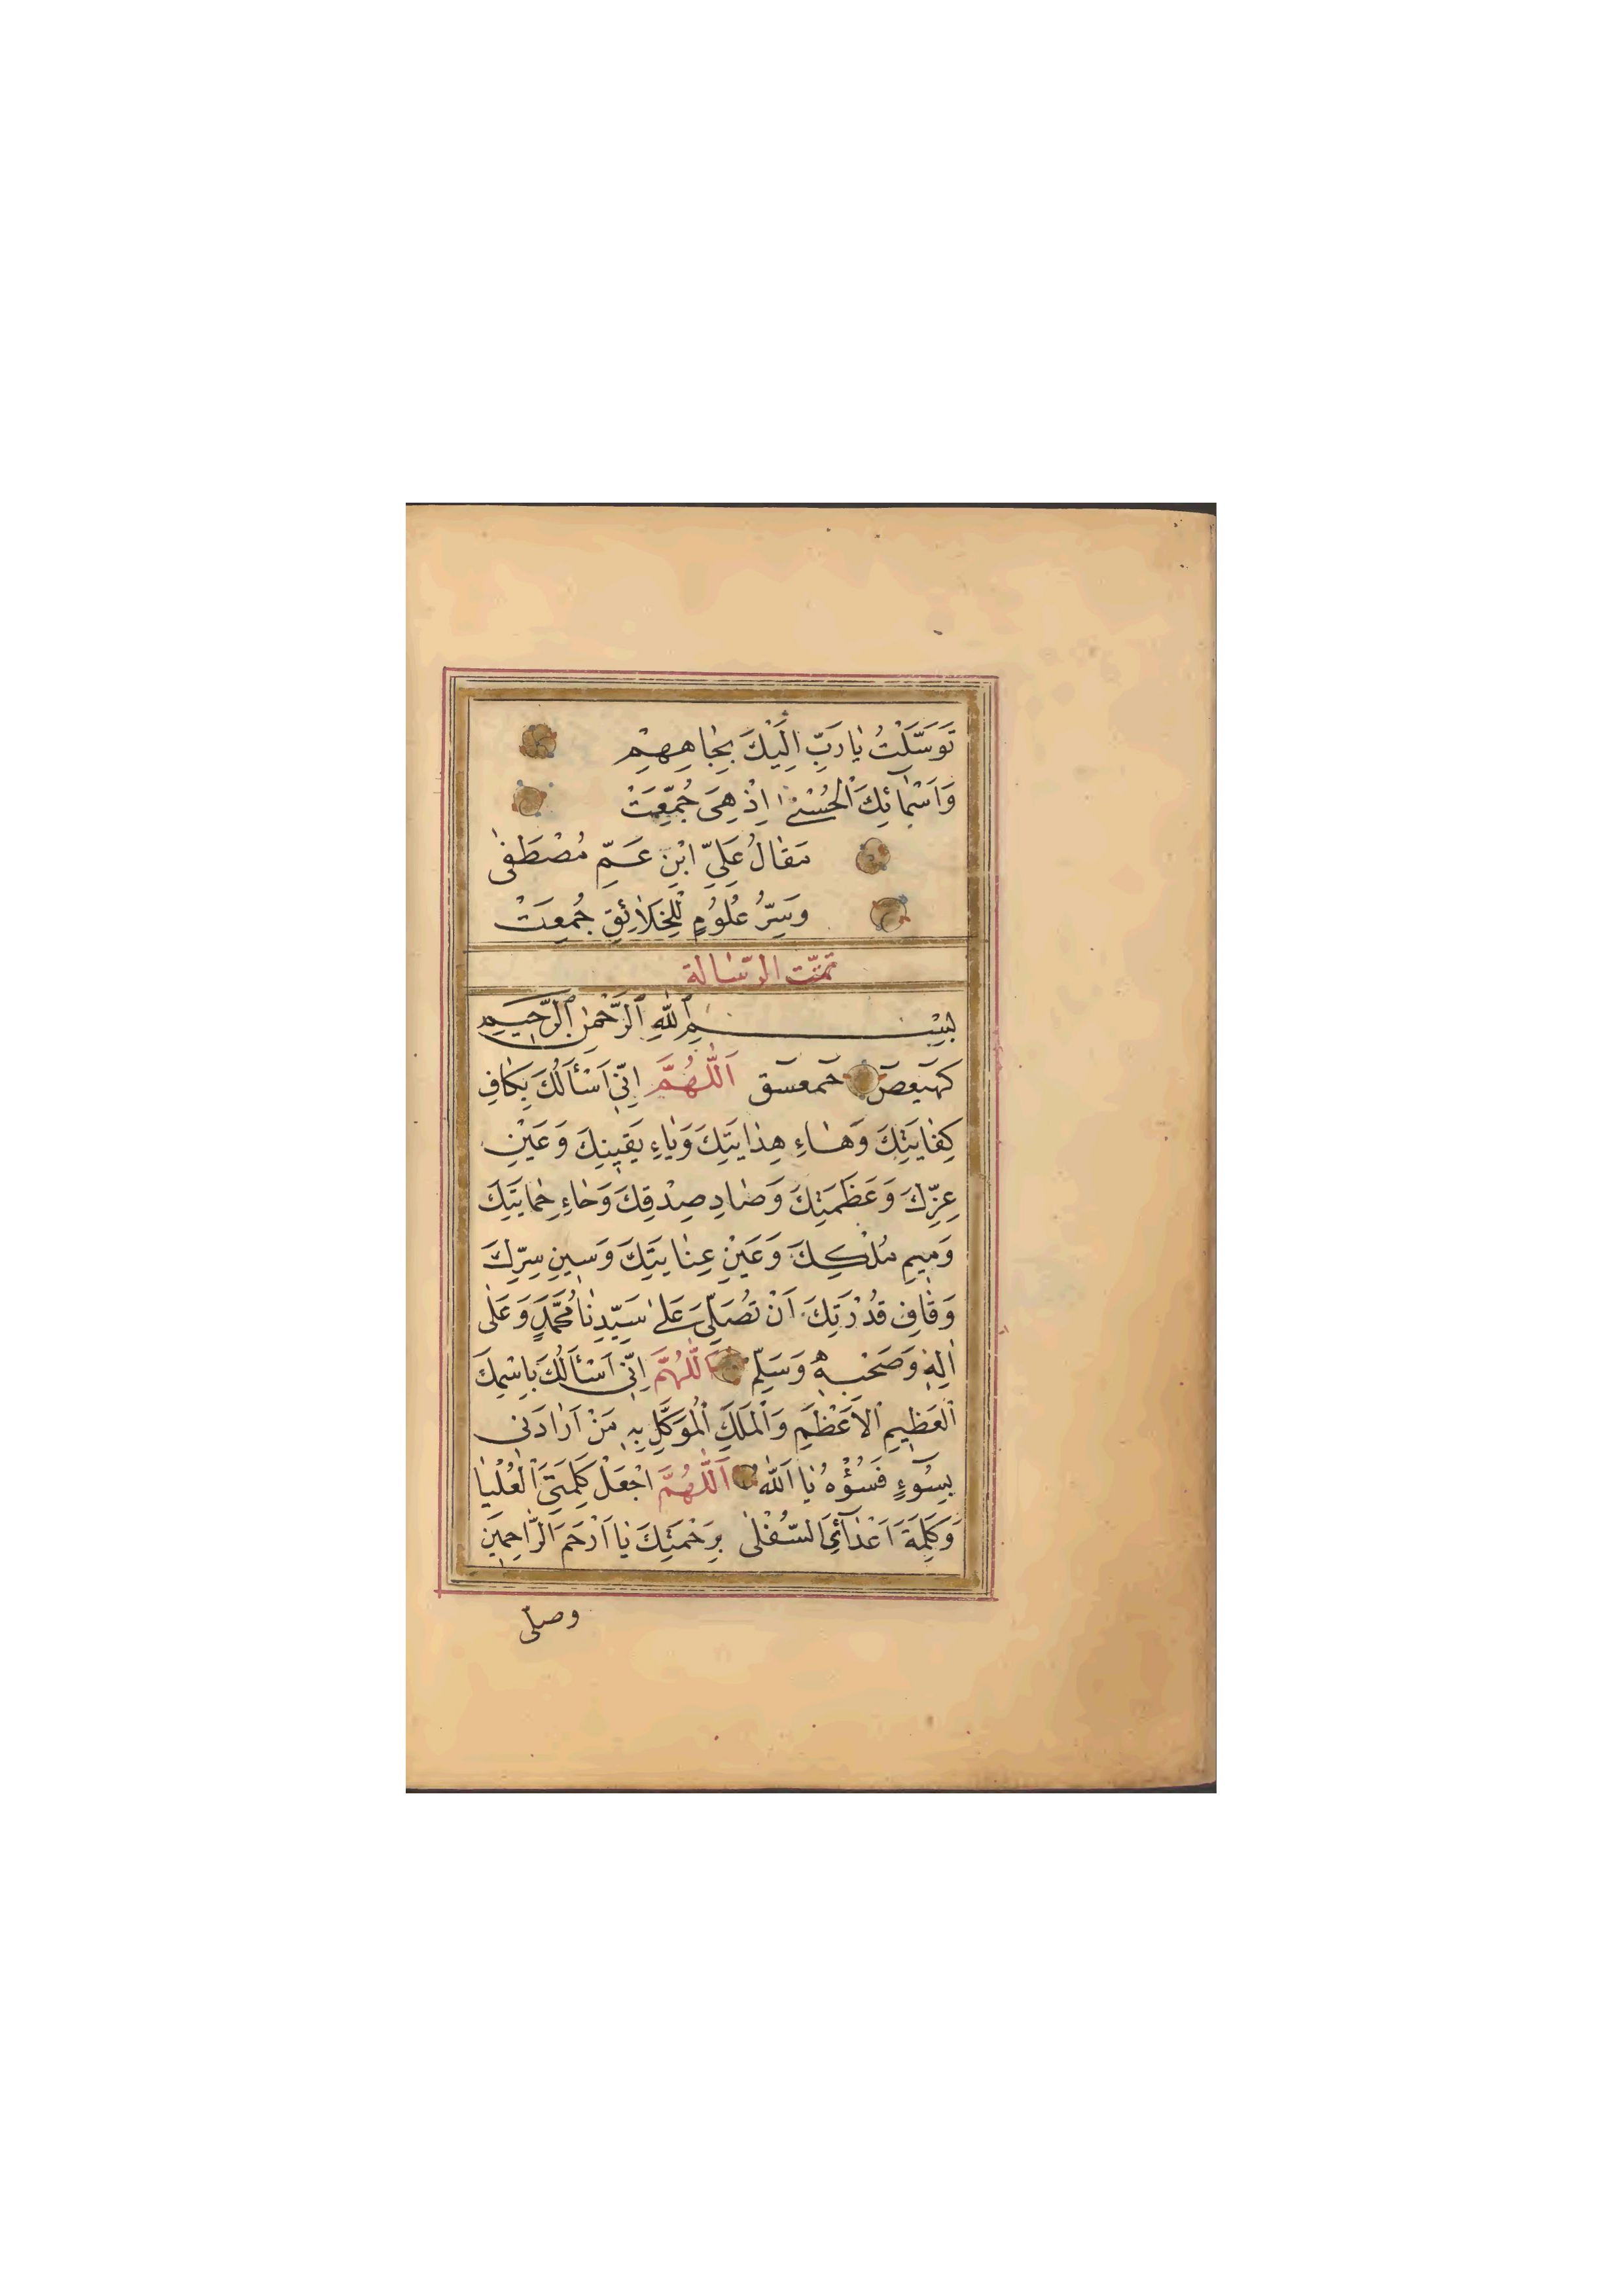 تَوَسَّلْتُ يَا رَبِّ اِلَيْكَ بِجَاهِهِمْ
وَاَسْمَآئِكَ الْحُسْنٰى اِذْ هِىَ جُمِّعَتْ
مَقَالُ عَلِيٍّ ابْنِ عَمِّ مُصْطَفٰى
وَسِرُّ عُلُومٍ لِلْخَلَائِقِ جُمِعَتْ
تمّت الرّسالة
بِسْمِ اللّٰهِ الرَّحْمٰنِ الرَّحِيمِ
كٓهٰيٰعٓصٓ حٰمٓعٓسٓقٓ اَللّٰهُمَّ اِنِّى اَسْئَالُكَ بِكَافِ
كِفَايَتِكَ وَهَاءِ هِدَايَتِكَ وَيَاءِ يَقِينِكَ وَعَيْنِ
عِزِّكَ وَعَظَمَتِكَ وَصَادِ صِدْقِكَ وَحَاءِ حِمَايَتِكَ
وَمِيمِ مُلْكِكَ وَعَيْنِ عِنَايَتِكَ وَسِينِ سِرِّكَ
وَقَافِ قُدْرَتِكَ اَنْ تُصَلِّىَ عَلٰى سَيِّدِنَا مُحَمَّدٍ وَعَلٰى
اٰلِهٖ وَصَحْبِهٖ وَسَلِّمْ اَللّٰهُمَّ اِنِّى اَسْئَالُكَ بِاسْمِكَ
الْعَظِيمِ الْاَعْظَمِ وَالْمَلَكِ الْمُوَكَّلِ بِهٖ مَنْ اَرَادَنِى
بِسُوءٍ فَسُؤْهُ يَا اَللّٰهُ اَللّٰهُمَّ اجْعَلْ كَلِمَتِىَ الْعُلْيَا
وَكَلِمَةَ اَعْدَآئِىَ السُّفْلٰى بِرَحْمَتِكَ يَا اَرْحَمَ الرَّاحِمِينَ
وصلّى